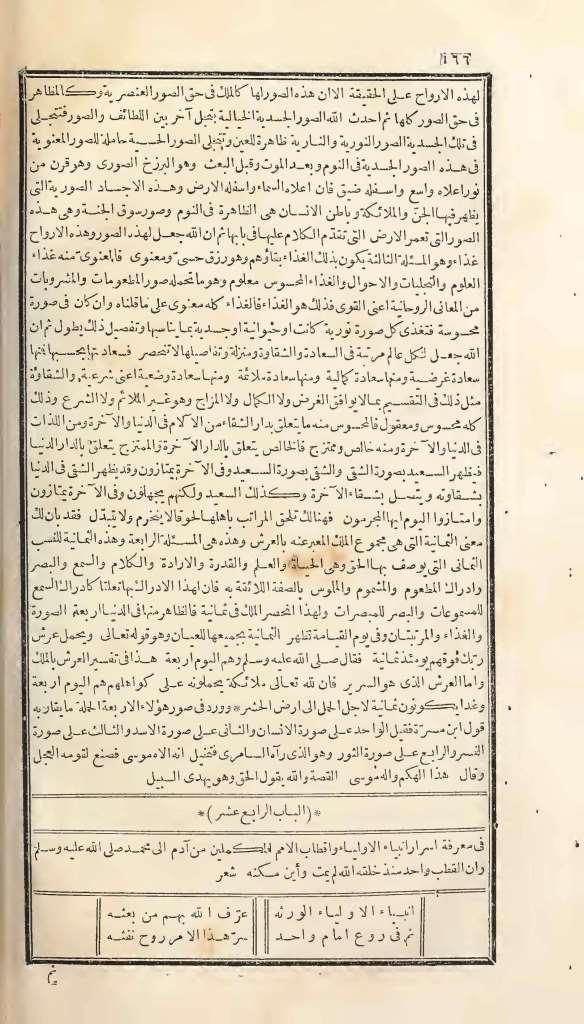 ١٦٦
لهذه الارواح على الحقيقة الاان هذه الصورلها كالملك فى حق الصور العنصرية وكالمظاهر
فى حق الصور كلها ثم احدث الله الصور الجسدية الخيالية بتجل آخر بين اللطائف والصور فتتجلى
فى تلك الجسدية الصور النورية والنارية ظاهرة للعين وتتجلى الصور الحسية حاملة للصور المعنوية
فى هذه الصور الجسدية فى النوم وبعد الموت وقبل البعث وهو البرزخ الصورى وهو قرن من
نور اعلاه واسع واسفله ضيق فان اعلاه السماء واسفله الارض وهذه الاجساد الصورية التى
يظهر فيها الجن والملائكة وباطن الانسان هى الظاهرة فى النوم وصور سوق الجنة وهى هذه
الصور التى تعمر الارض التى تقدم الكلام عليها فى بابها ثم ان الله جعل لهذه الصور وهذه الارواح
غذاء وهو المسئلة الثالثة يكون بذلك الغذاء بقاؤهم وهو رزق حسى ومعنوى فالمعنوى منه غذاء
العلوم والتجليات والاحوال والغذاء المحسوس معلوم وهو ما تحمله صور المطعومات والمشروبات
من المعانى الروحانية اعنى القوى فذلك هو الغذاء فالغذاء كله معنوى على ما قلناه وان كان فى صورة
محسوسة فتغذى كل صورة نورية كانت اوحيوانية اوجسدية بما يناسبها وتفصيل ذلك يطول ثم ان
الله جعل لكل عالم مرتبة فى السعادة والشقاوة ومنزلة وتفاصيلها لا تنحصر فسعادتها بحسبها فمنها
سعادة غرضية ومنها سعادة كمالية ومنها سعادة ملائمة ومنها سعادة وضعية اعنى شرعية والشقاوة
مثل ذلك فى التقسيم بما لا يوافق الغرض ولا الكمال ولا المزاج وهو غير الملائم ولا الشرع وذلك
كله محسوس ومعقول فالمحسوس منه ما يتعلق بدار الشقاء من الآلام فى الدنيا والآخرة ومن اللذات
فى الدنيا والآخرة ومنه خالص وممتزج فالخالص يتعلق بالدار الآخرة والممتزج يتعلق بالدار الدنيا
فيظهر السعيد بصورة الشقى والشقى بصورة السعيد وفى الآخرة يمتازون وقد يظهر الشقى فى الدنيا
بشقاوته ويتصل بشقاء الآخرة وكذلك السعيد ولكنهم مجهولون وفى الآخرة يمتازون
وامتازوا اليوم ايها المجرمون فهنالك تلحق المراتب باهلها لحوقا لا ينخرم ولا يتبدل فقد بان لك
معنى الثمانية التى هى مجموع الملك المعبر عنه بالعرش وهذه هى المسئلة الرابعة وهذه الثمانية للنسب
الثمانى التى يوصف بها الحق وهى الحياة والعلم والقدرة والارادة والكلام والسمع والبصر
وادراك المطعوم والمشموم والملموس بالصفة اللائقة به فان لهذا الادراك بها تعلقا كادراك السمع
للمسموعات والبصر للمبصرات ولهذا انحصر الملك فى ثمانية فالظاهر منها فى الدنيا اربعة الصورة
والغذاء والمرتبتان وفى يوم القيامة تظهر الثمانية بجميعها للعيان وهو قوله تعالى ويحمل عرش
ربك فوقهم يومئذ ثمانية فقال صلى الله عليه وسلم وهم اليوم اربعة هذا فى تفسير العرش بالملك
واما العرش الذى هو السرير فان لله تعالى ملائكة يحملونه على كواهلهم هم اليوم اربعة
وغدا يكونون ثمانية لاجل الحمل الى ارض الحشر * وورد فى صور هؤلاء الاربعة الحملة ما يقاربه
قول ابن مسرة فقيل الواحد على صورة الانسان والثانى على صورة الاسد والثالث على صورة
النسر والرابع على صورة الثور وهو الذى رآه السامرى فتخيل انه اله موسى فصنع لقومه العجل
وقال هذا الهكم واله موسى القصة والله يقول الحق وهو يهدى السبيل
*(الباب الرابع عشر)*
فى معرفة اسرار انبياء الاولياء واقطاب الامم المكملين من آدم الى محمد صلى الله عليه وسلم
وان القطب واحد منذ خلقه الله لم يمت وأين مسكنه شعر
انبياء الاولياء الورثه عرّف الله بهم من بعثه
ثم فى روع امام واحد سرّ هذا الامر روح نفثه